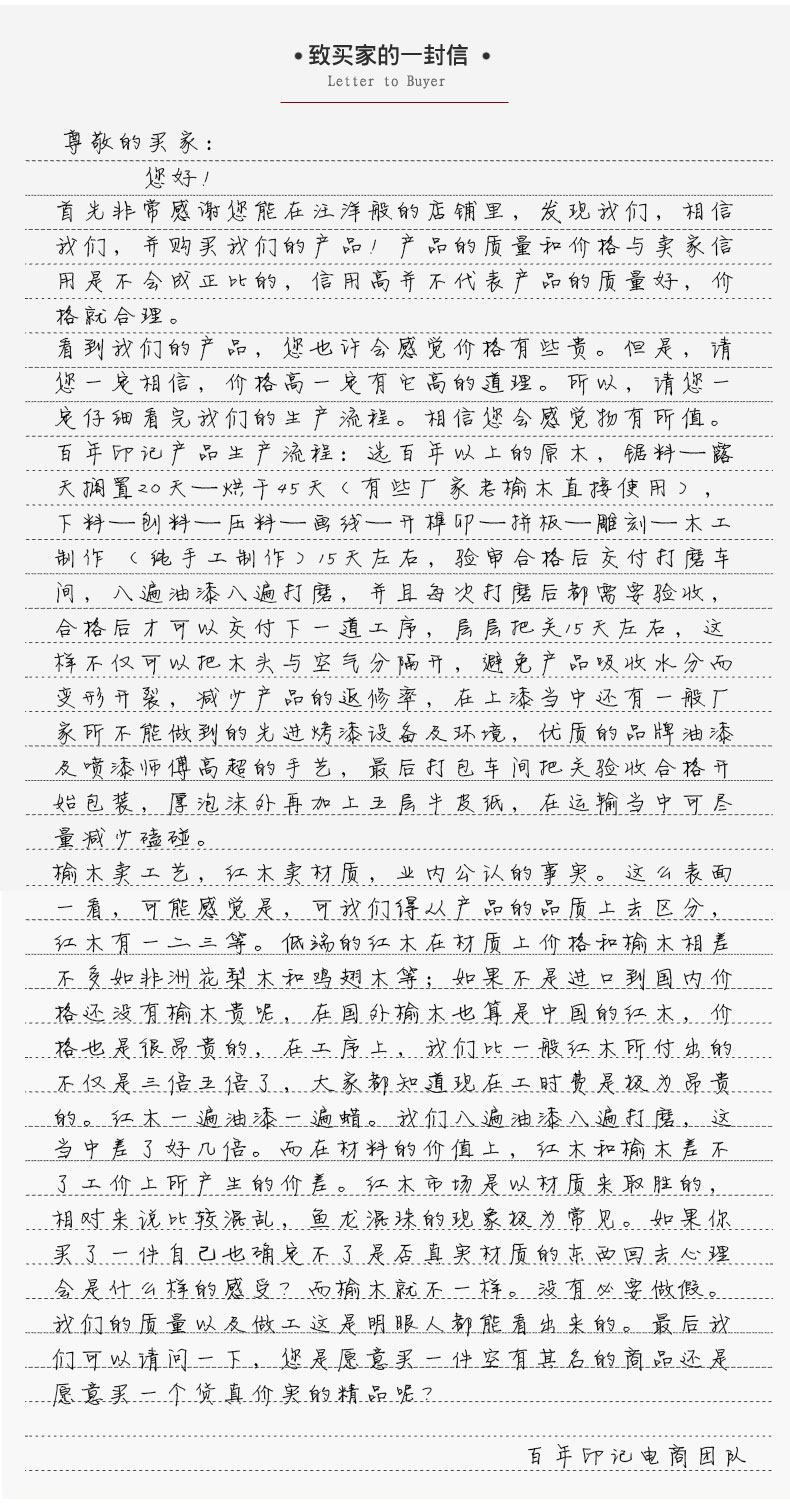 •致买家的一封信 •
Letter to Buyer
尊敬的买家：
您好！
首先非常感谢您能在汪洋般的店铺里，发现我们，相信
我们，并购买我们的产品！产品的质量和价格与卖家信
用是不会成正比的，信用高并不代表产品的质量好，价
格就合理。
看到我们的产品，您也许会感觉价格有些贵。但是，请
您一定相信，价格高一定有它高的道理。所以，请您一
定仔细看完我们的生产流程。相信您会感觉物有所值。
百年印记产品生产流程：选百年以上的原木，锯料—露
天搁置20天—烘干45天（有些厂家老榆木直接使用），
下料—刨料—压料—画线—开榫卯—拼板—雕刻—木工
制作（纯手工制作）15天左右，验审合格后交付打磨车
间，八遍油漆八遍打磨，并且每次打磨后都需要验收，
合格后才可以交付下一道工序，层层把关15天左右，这
样不仅可以把木头与空气分隔开，避免产品吸收水分而
变形开裂，减少产品的返修率，在上漆当中还有一般厂
家所不能做到的先进烤漆设备及环境，优质的品牌油漆
及喷漆师傅高超的手艺，最后打包车间把关验收合格开
始包装，厚泡沫外再加上五层牛皮纸，在运输当中可尽
量减少磕碰。
榆木卖工艺，红木卖材质，业内公认的事实。这么表面
一看，可能感觉是，可我们得从产品的品质上去区分，
红木有一二三等。低端的红木在材质上价格和榆木相差
不多如非洲花梨木和鸡翅木等；如果不是进口到国内价
格还没有榆木贵呢，在国外榆木也算是中国的红木，价
格也是很昂贵的，在工序上，我们比一般红木所付出的
不仅是三倍五倍了，大家都知道现在工时费是极为昂贵
的。红木一遍油漆一遍蜡。我们八遍油漆八遍打磨，这
当中差了好几倍。而在材料的价值上，红木和榆木差不
了工价上所产生的价差。红木市场是以材质来取胜的，
相对来说比较混乱，鱼龙混珠的现象极为常见。如果你
买了一件自己也确定不了是否真实材质的东西回去心理
会是什么样的感受？而榆木就不一样。没有必要做假。
我们的质量以及做工这是明眼人都能看出来的。最后我
们可以请问一下，您是愿意买一件空有其名的商品还是
愿意买一个货真价实的精品呢？
百年印记电商团队